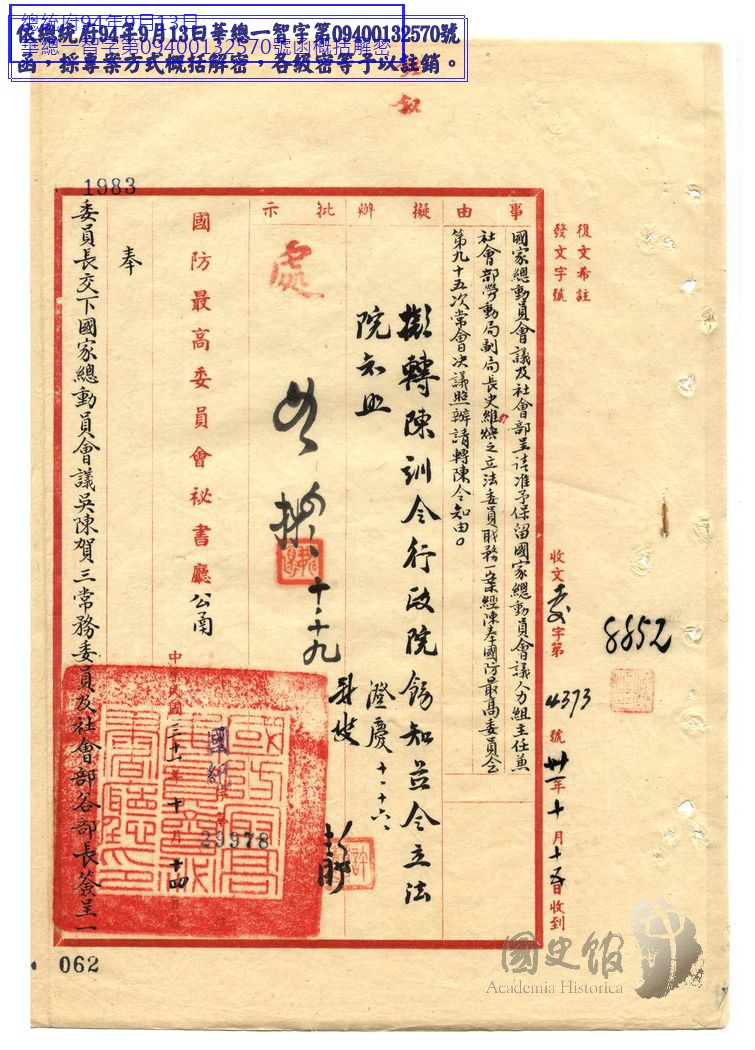 總統府94年9月13日
華總一智字第09400132570號函概括解密
依總統府94年9月13日華總一智字第09400132570號
函，採專案方式概括解密，各級密等予以註銷。
1983
復文希註
發文字號
收文 字第4373號 卅一年十月十五日收到
8852
事由
擬辦
批示
國家總動員會議及社會部呈請准予保留國家總動員會議人力組主任兼
社會部勞動局副局長史維煥之立法委員職務一案經陳奉國防最高委員會
第九十五次常會決議照辦請轉陳令知由。
擬轉陳訓令行政院飭知並令立法
院知照
澄慶 十、十六、
處
如擬
十、十九
國防最高委員會秘書廳公函
中華民國三十一年十月十四日
國紀
29978
奉
委員長交下國家總動員會議吳陳賀三常務委員及社會部谷部長簽呈一
062
國史館
Academia Historica